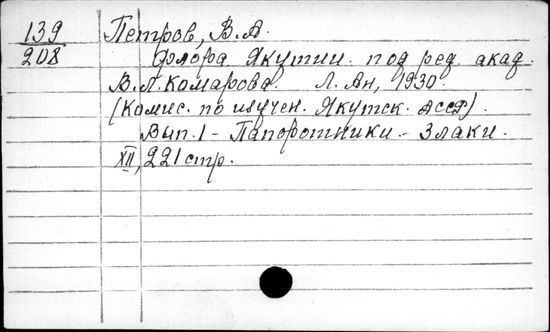 139
208
Петров, В.А.
Флора Якутии. под ред. акад.
В.Л. Комарова. Л. Ан, 1930.
(Комис. по изучен. Якутск. АССР).
Вып. 1 - Папоротники. - Злаки.
XII, 221 стр.